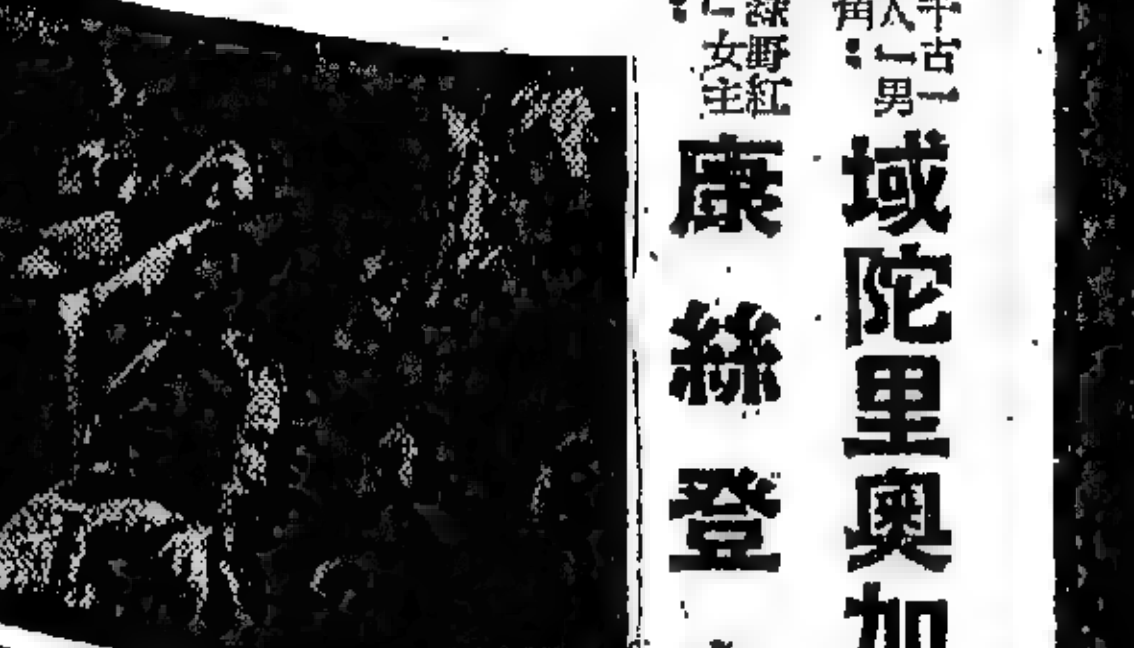 千古一
人一男
角：
域陀里奧加
綠野紅
女主
康絲登